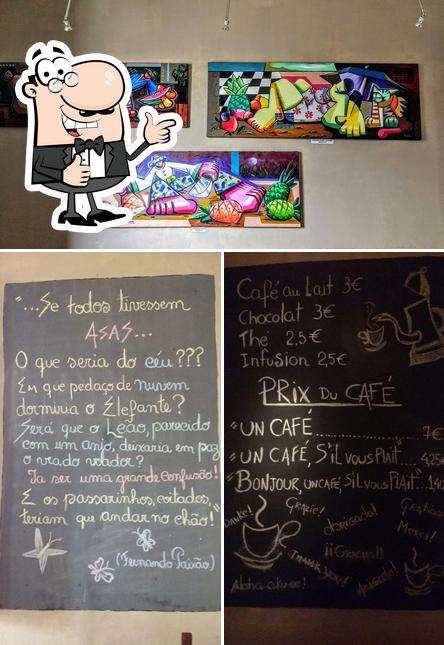 "...Se todos tivessem
ASAS...
O que seria do céu???
Em que pedaço de nuvem
dormiria o Elefante?
Será que o Leão, parecido
com um anjo, deixaria em paz
o viado voador?
Ia ser uma grande confusão!
E os passarinhos, coitados,
teriam que andar no chão!"
(Fernando Paixão)
Café au Lait 3€
Chocolat 3€
Thé 2.5€
Infusion 2,5€
PRIX DU CAFÉ
"UN CAFÉ............................7€
"UN CAFÉ, S'IL VOUS PLAIT"...4,25€
"BONJOUR, UN CAFÉ, S'IL VOUS PLAIT"...1,40
Danke!
Grazie!
obrigado!
Gratias
Merci!
¡¡¡Gracias!!!
Thank you!
Obrigado!